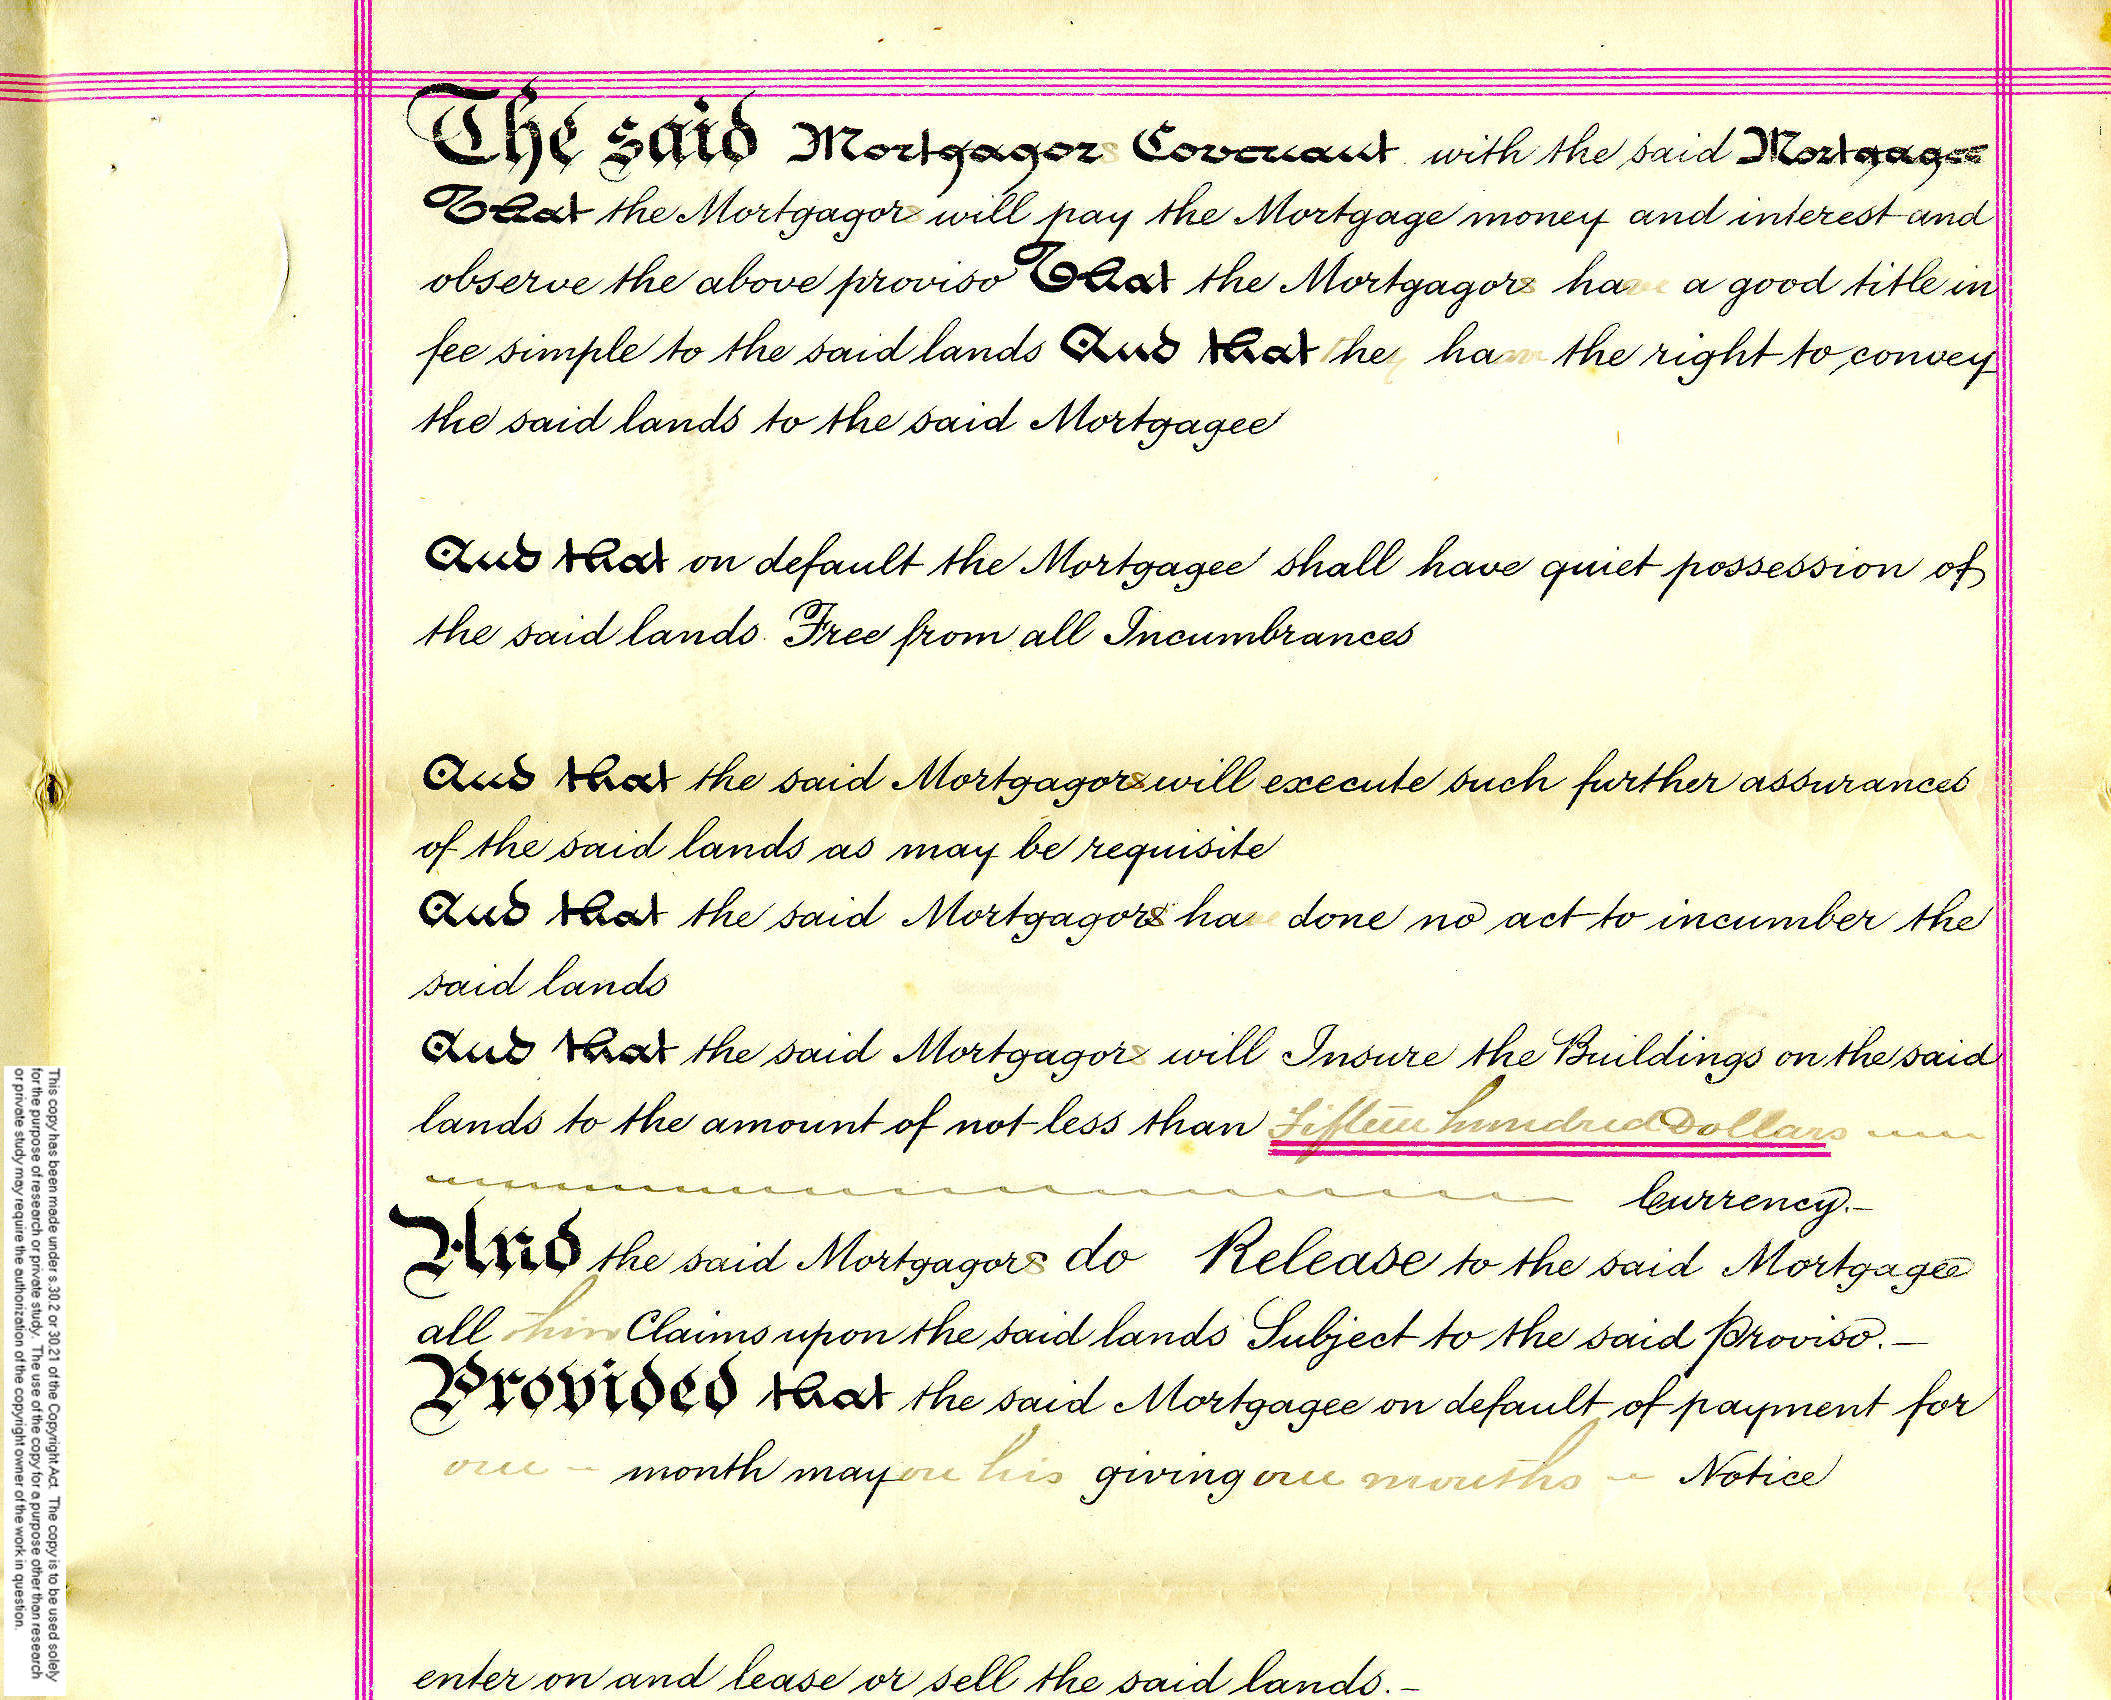 The said Mortgagors Covenant with the said Mortgagee
That the Mortgagors will pay the Mortgage money and interest and
observe the above proviso That the Mortgagors have a good title in
fee simple to the said lands And that they have the right to convey
the said lands to the said Mortgagee
And that on default the Mortgagee shall have quiet possession of
the said lands Free from all Incumbrances
And that the said Mortgagors will execute such further assurances
of the said lands as may be requisite
And that the said Mortgagors have done no act to incumber the
said lands
And that the said Mortgagors will Insure the Buildings on the said
lands to the amount of not less than Fifteen hundred Dollars
Currency.-
And the said Mortgagors do Release to the said Mortgagee
all Claims upon the said lands Subject to the said Proviso.-
Provided that the said Mortgagee on default of payment for
one - month may on his giving one months - Notice
enter on and lease or sell the said lands.-
This copy has been made under s.30.2 or 30.21 of the Copyright Act. The copy is to be used solely
for the purpose of research or private study. The use of the copy for a purpose other than research
or private study may require the authorization of the copyright owner of the work in question.